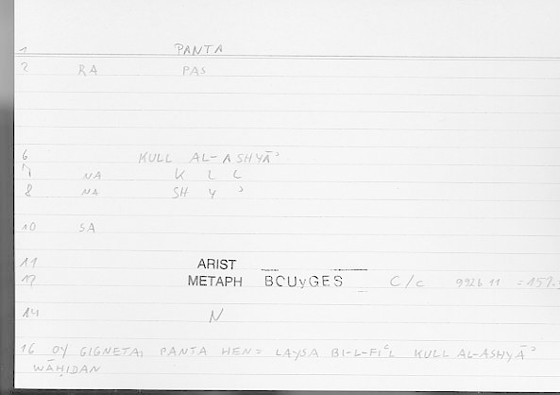 1 PANTA
2 RA PAS
6 KULL AL-ASHYĀʾ
7 NA K L L
8 NA SH Y ʾ
10 SA
11 ARIST
12 METAPH BOUyGES C/c 992b 11
14 N
16 OY GIGNETAI PANTA HEN = LAYSA BI-L-FIʿL KULL AL-ASHYĀʾ
WĀḤIDAN